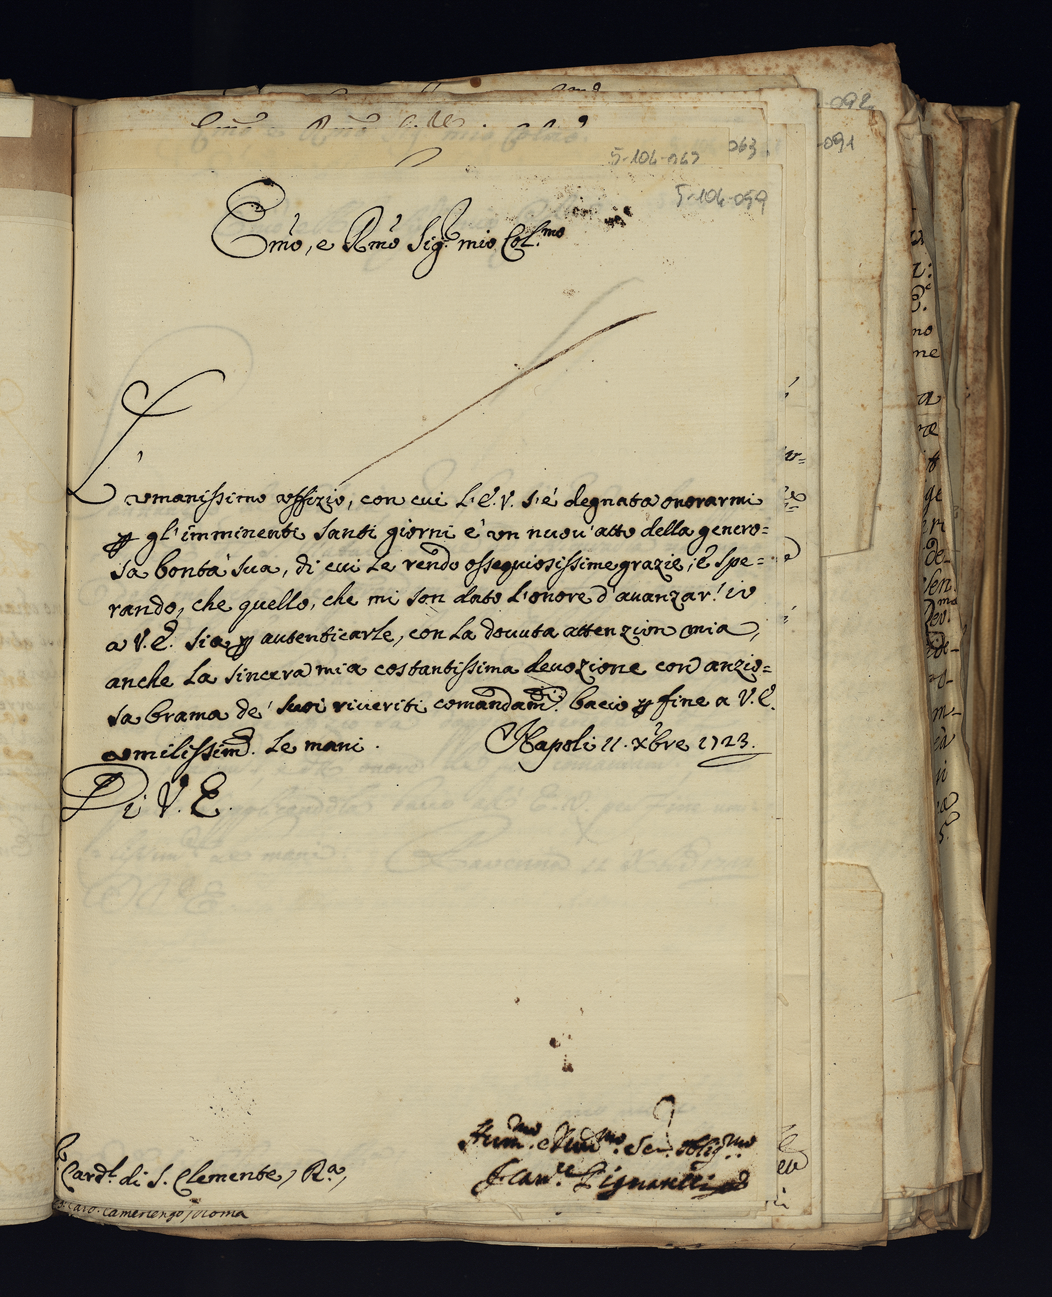 092
091
063.
5-104-067
5-104-059
Em̃o, e Rm̃o Sig.r mio Col.mo
L'umanissimo uffizio, con cui L'E.V. s'è degnata onorarmi
ꝑ gl'imminenti santi giorni è un nuov'atto della genero=
sa bontà sua, di cui Le rendo ossequiosissime grazie; e spe=
rando, che quello, che mi son dato l'onore d'avanzar' io
a V.E. sia ꝑ autenticarle, con la dovuta attenzion mia,
anche la sincera mia costantissima devozione con anzio=
sa brama de' suoi riveriti comandam.ti bacio ꝑ fine a V.E.
umilissim.e Le mani. Napoli 11. Xbre 1723.
Di V. E.
Hum.mo e Dev.mo Ser. oblig.mo
Card.l di S. Clemente, R.a,
Fran.co Pignatelli
Card. Camerlengo / Roma